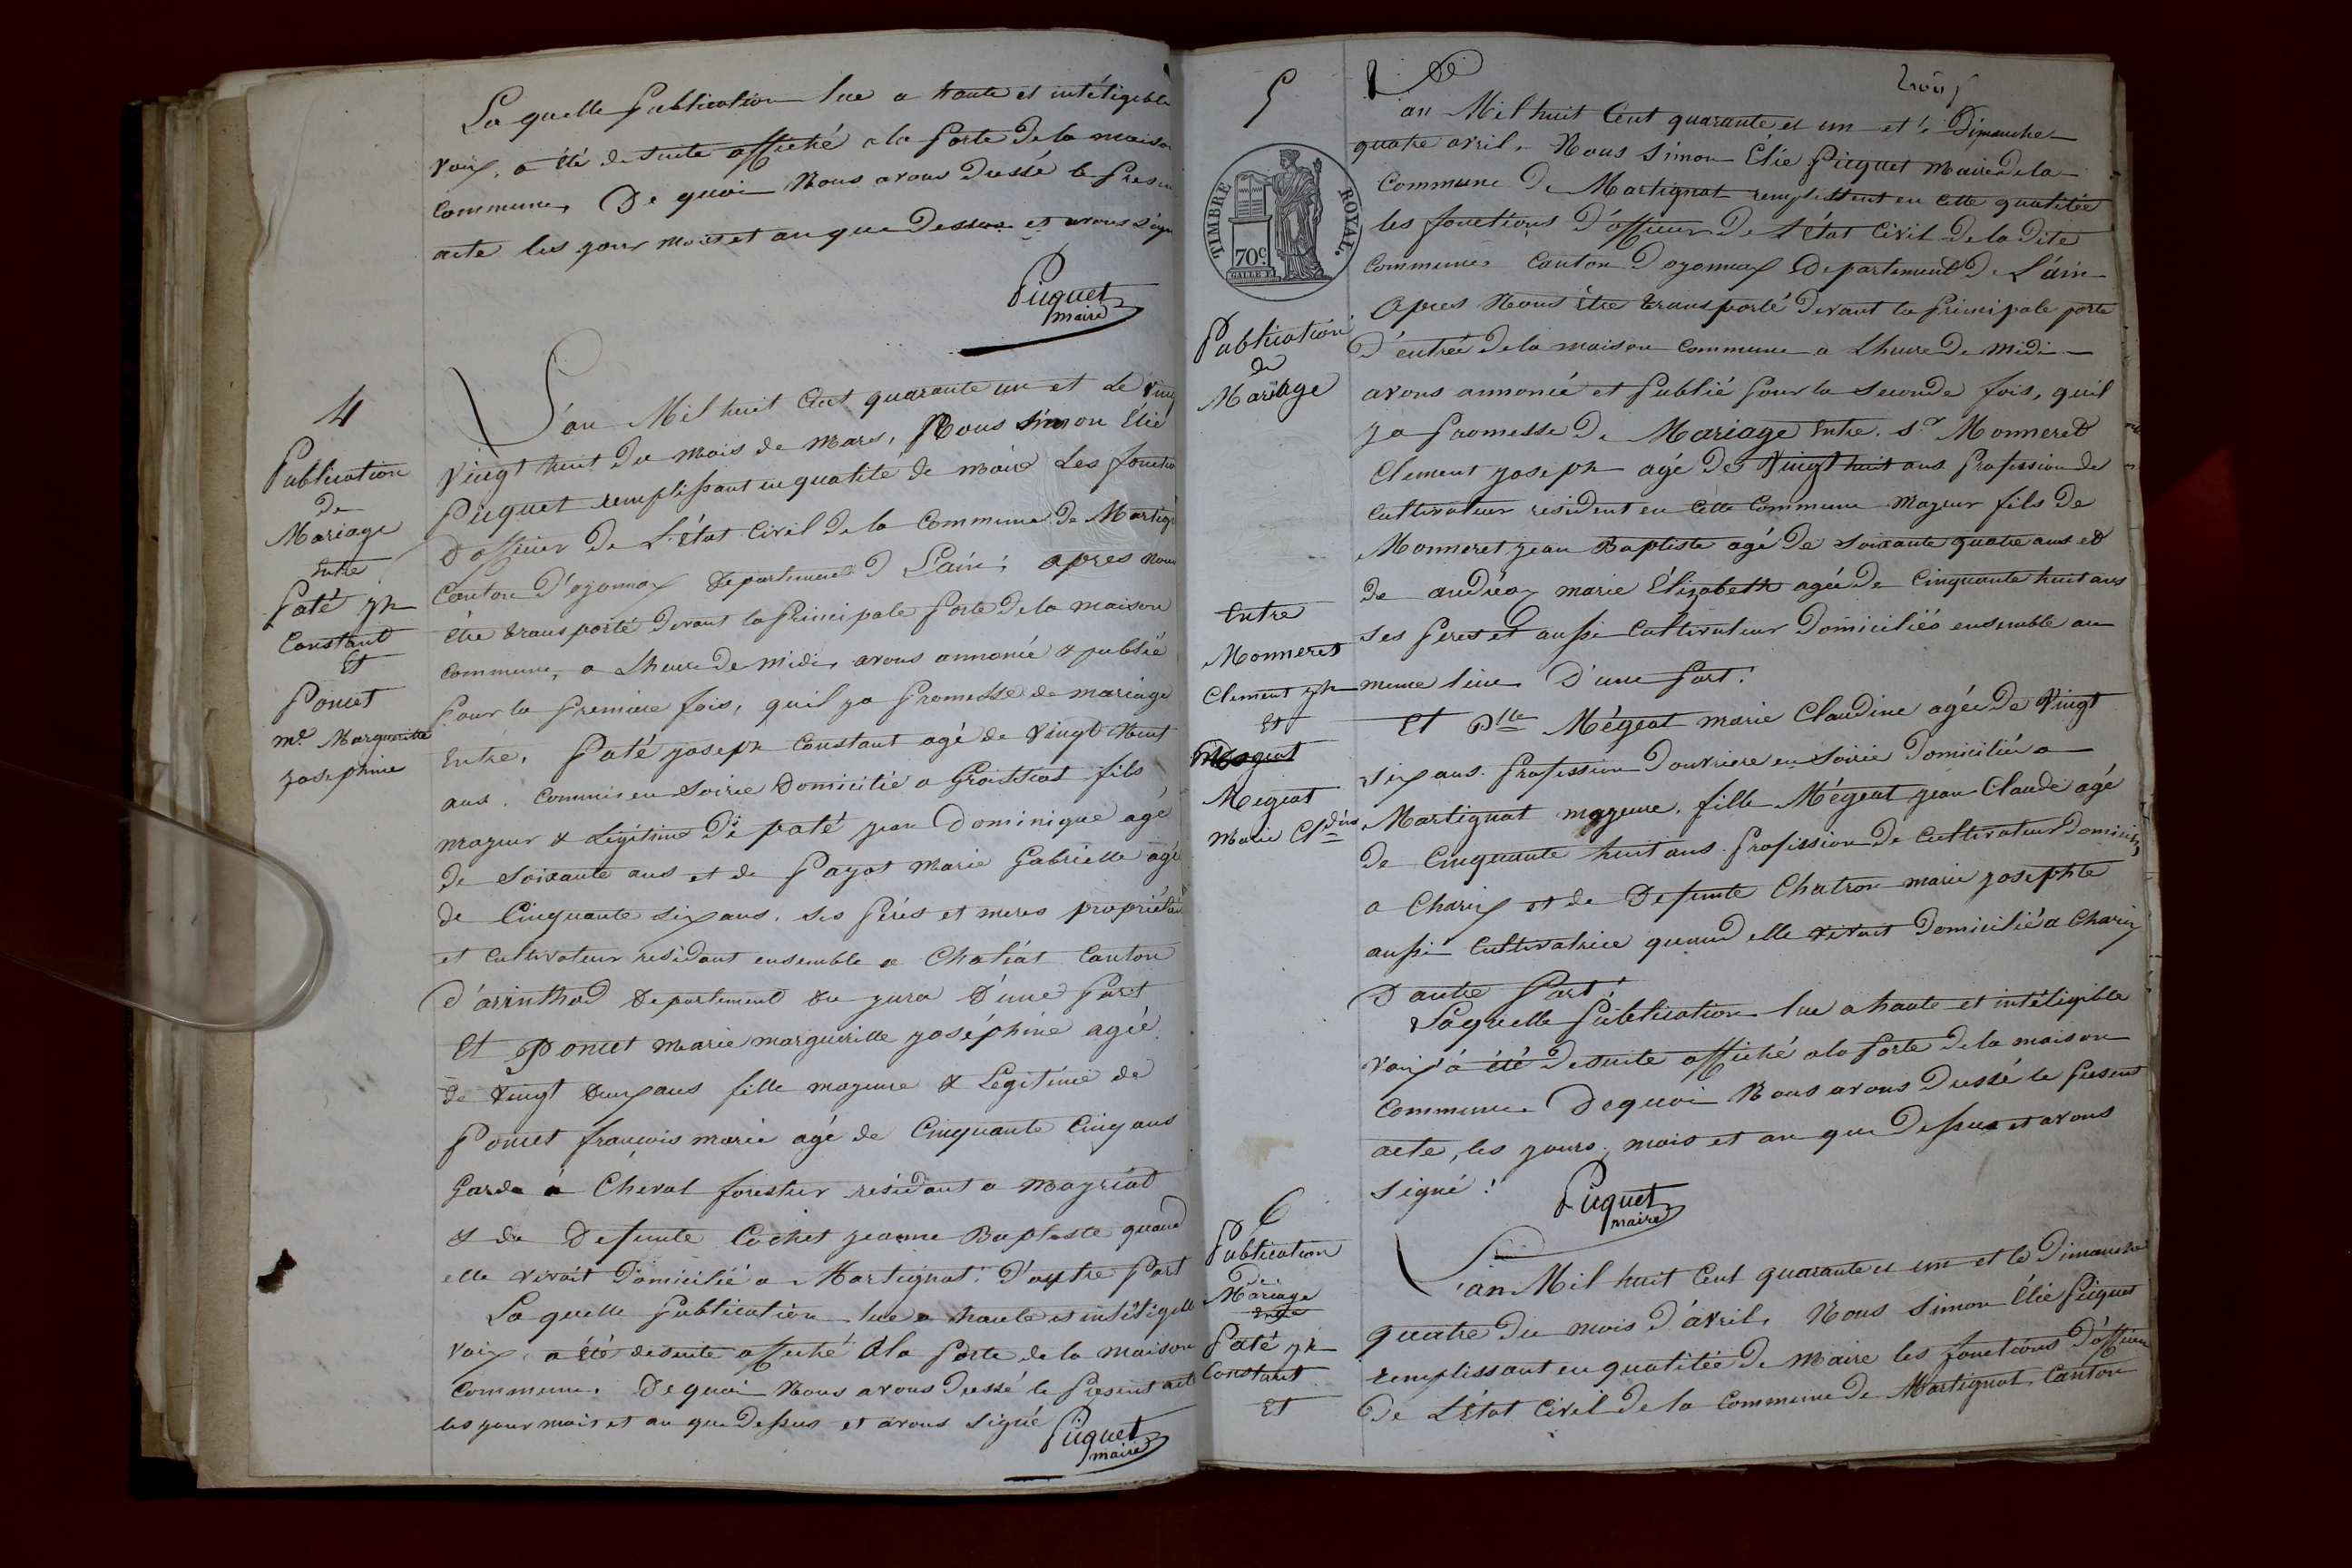 La quelle Publication lue a haute et intéligible
voix, a été de suite affiché a la Porte de la maison
commune, De quoi Nous avons Dressé le Presen
acte les jour mois et an que Dessus et avons signé
Picquet
maire
4
Publication
de
Mariage
Entre
Paté jh
Constant
Et
Poncet
me. Marguerite
josephine
L'an Mil huit Cent quarante un et Le
Vingt huit du Mois de Mars, Nous simon Élie
Picquet remplissant en qualité de maire Les foncti
d'officier De L'état Civil De la Commune De Martig
Canton D'oyonnax Departement D L'ain; apres nous
Etre transporté Devant la Principale Porte De la maison
commune, a Lheure de midi, avons annoncé & publié
Pour la Premiere fois, quil ya Promesse de mariage
Entre, Paté joseph Constant agé de Vingt huit
ans, Commis en soirie Domicilié a Groissiat fils
majeur & Légitime De paté jean Dominique agé
De Soixante ans et de Payot Marie Gabrielle agé
de Cinquante six ans. ses Péres et meres propriétai
et cultivateur residant ensemble a Chatiat Canton
D'arinthod Departement du jura D'une Part
Et Poncet Marie margueritte joséphine agée
De Vingt deux ans fille majeure & Legitime de
Poncet françois marie agé de Cinquante Cinq ans
Garde a Cheval forestier residant a mayriat
& de Defunte Cochet jeanne Baptiste quand
elle vivait Domicilié a Martignat; D'autre Part
La quelle Publication lue a haute et intéligible
Voix, a été de suite affiché A la Porte de la maison
commune. De quoi Nous avons Dressé le Present acte
les jour mois et an que Dessus et avons signé
Picquet
maire
5
TIMBRE ROYAL.
70c.
Publication
de
Mariage
Entre
Monneret
Clement jh
Et
Megeat
Megeat
Marie Cldine
L'an Mil huit Cent quarante et un et le Dimanche
quatre avril, Nous Simon Élie Picquet Maire de la
Commune De Martignat remplissent en Cette qualitée
les fonctions D'officier De L'état Civil De la Dite
Commune, Canton D'oyonnax Departement De L'ain
Apres Nous Être transporté Devant la Principale porte
D'entrée De la maison Commune a Lheure De midi
avons annoncé et Publié Pour la Seconde fois, quil
ya Promesse De Mariage Entre. sr Monneret
Clement joseph agé De Vingt huit ans Profession de
Cultivateur resident en Cette Commune Majeur fils De
Monneret jean Baptiste agé De Soixante quatre ans et
De andréa marie Elizabeth agée De Cinquante huit ans
ses Peres et aussi Cultivateur Domiciliés ensemble au
meme lieu. D'une Part.
Et Dlle Mégeat marie Claudine agée De Vingt
six ans. Profession D'ouvriere en Soirie Domiciliée a
Martignat majeure, fille Mégeat jean Claude agé
De Cinquante huit ans Profession De Cultivateur Domicilié
a Charix et De Defunte Chatron marie josephte
aussi Cultivatrice quand elle vivait Domiciliée a Charix
D'autre Part;
Laquelle Publication lue a haute et intéligible
Voix a été De suite affiché a la Porte De la maison
Commune. De quoi Nous avons Dressé le Present
acte, les jours, mois et an que Dessus et avons
signé!
Picquet
maire
6
Publication
De
Mariage
Entre
Paté jh
Constant
Et
L'an Mil huit Cent quarante et un et le Dimanche
quatre du mois D'avril, Nous Simon Élie Picquet
remplissant en qualitée De Maire les fonctions D'officier
De L'état Civil De la Commune De Martignat, Canton